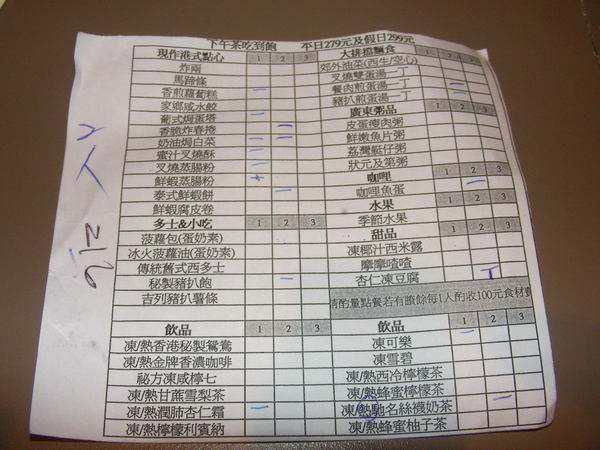 下午茶吃到飽 平日279元及假日299元
現作港式點心 1 2 3
炸兩
馬蹄條
香煎蘿蔔糕
家鄉咸水餃
葡式焗蛋塔
香脆炸春捲
奶油焗白菜
蜜汁叉燒酥
叉燒蒸腸粉
鮮蝦蒸腸粉
泰式鮮蝦餅
鮮蝦腐皮卷
多士&小吃 1 2 3
菠蘿包(蛋奶素)
冰火菠蘿油(蛋奶素)
傳統舊式西多士
秘製豬扒飽
吉列豬扒薯條
飲品 1 2 3
凍/熱香港秘製鴛鴦
凍/熱金牌香濃咖啡
祕方凍咸檸七
凍/熱甘蔗雪梨茶
凍/熱潤肺杏仁霜
凍/熱檸檬利賓納
大排擋麵食 1 2 3
郊外油菜(西生/空心)
叉燒雙蛋湯一丁
餐肉煎蛋湯一丁
豬扒煎蛋湯一丁
廣東粥品 1 2 3
皮蛋瘦肉粥
鮮嫩魚片粥
荔灣艇仔粥
狀元及第粥
咖哩 1 2 3
咖哩魚蛋
水果 1 2 3
季節水果
甜品 1 2 3
凍椰汁西米露
摩摩喳喳
杏仁凍豆腐
請酌量點餐若有賸餘每1人酌收100元食材費
飲品 1 2 3
凍可樂
凍雪碧
凍/熱西冷檸檬茶
凍/熱蜂蜜檸檬茶
凍/熱馳名絲襪奶茶
凍/熱蜂蜜柚子茶
2人